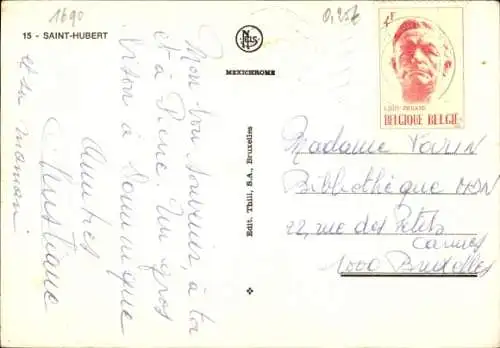 1690
0,25€
15 - SAINT-HUBERT
NELS
MEXICHROME
Edit. Thill, S.A., Bruxelles
BELGIQUE BELGIË
Mon bon souvenir, à toi
et à Pierre. Un gros
bison à Dominique
Amitiés
Christiane
et sa maman
Madame
Bibliothèque
22, rue des Petits
Carmes
1000 Bruxelles